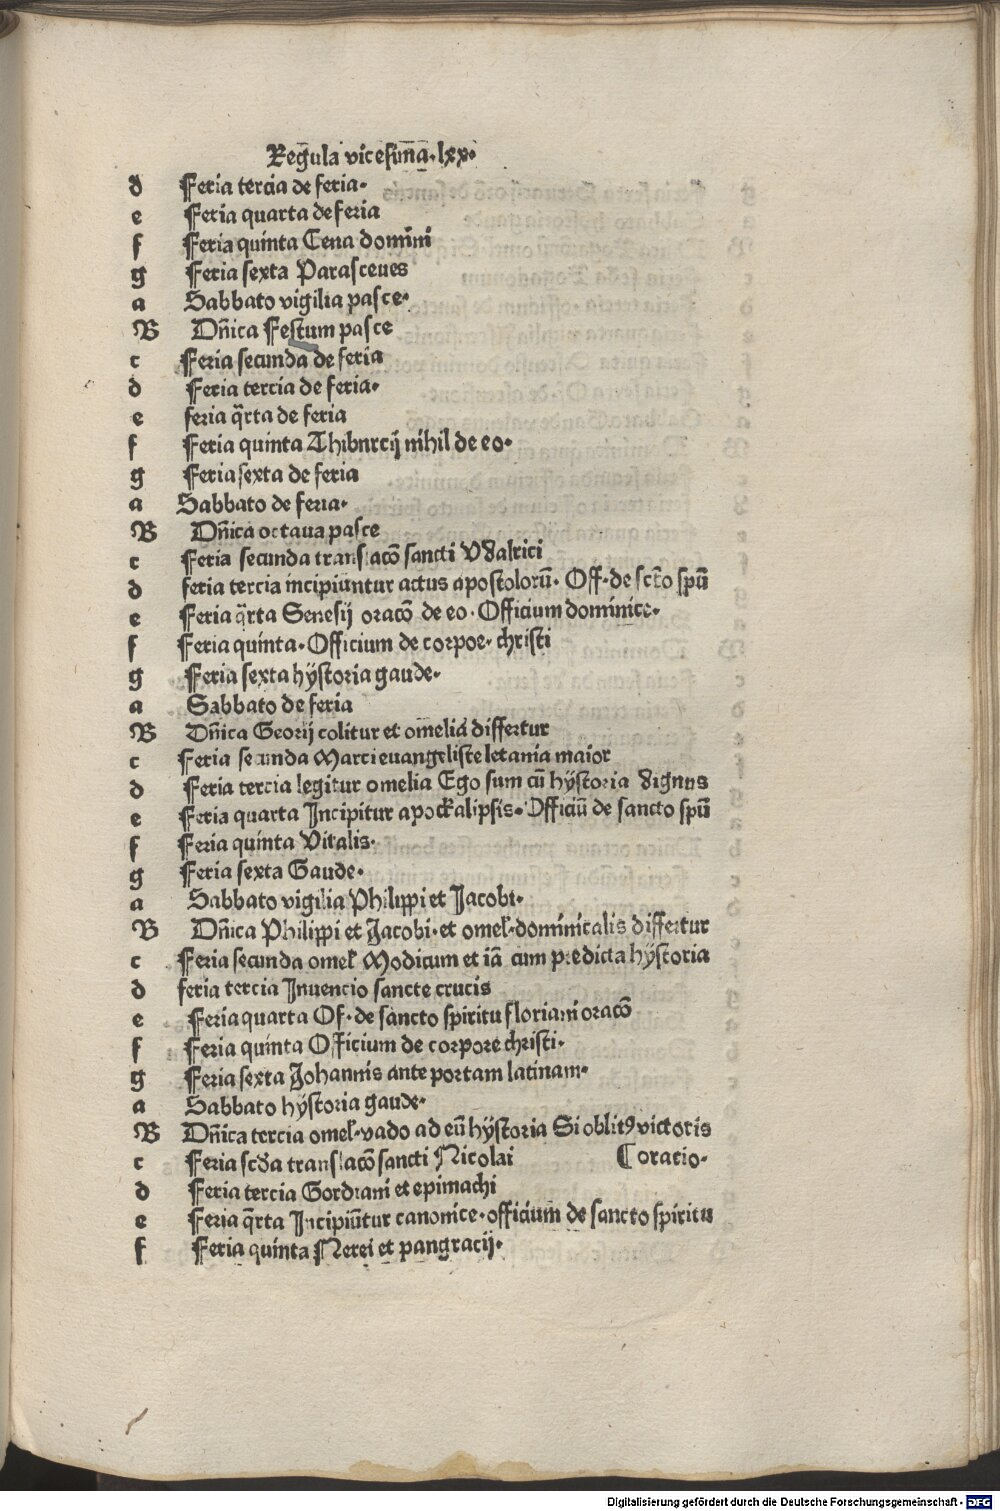 Regula vicesima̅·lxx·
d Feria tercia de feria·
e Feria quarta de feria
f Feria quinta Cena domini
g Feria sexta Parasceues
a Sabbato vigilia pasce·
B Dn̅ica Festum pasce
c Feria secunda de feria
d Feria tercia de feria·
e feria q̅rta de feria
f Feria quinta Thiburcij nihil de eo·
g Feria sexta de feria
a Sabbato de feria·
B Dn̅ica octaua pasce
c Feria secunda translaco̅ sancti Vdalrici
d feria tercia incipiuntur actus apostoloru̅· Off·de scto̅ spu̅
e Feria q̅rta Senesij oraco̅ de eo·Officium dominice·
f Feria quinta·Officium de corpoe·christi
g Feria sexta hÿstoria gaude·
a Sabbato de feria
B Dn̅ica Georij colitur et omelia differtur
c Feria secunda Marci euangeliste letania maior
d Feria tercia legitur omelia Ego sum cu̅ hÿstoria dignus
e Feria quarta Incipitur apockalipsis·Officiu̅ de sancto spu̅
f Feria quinta Vitalis·
g Feria sexta Gaude·
a Sabbato vigilia Philippi et Jacobi·
B Dn̅ica Philippi et Jacobi·et omel̅·dominicalis differtur
c Feria secunda omel̅ Modicum et ia̅ cum predicta hÿstoria
d feria tercia Inuencio sancte crucis
e Feria quarta Of·de sancto spiritu floriani oraco̅
f Feria quinta Officium de corpore christi·
g Feria sexta Johannis ante portam latinam·
a Sabbato hÿstoria gaude·
B Dn̅ica tercia omel̅·vado ad eu̅ hÿstoria Si oblitꝰ victoris
c Feria scd̅a translaco̅ sancti Nicolai ⸿ oracio·
d Feria tercia Gordiani et epimachi
e Feria q̅rta Incipiu̅tur canonice·officium de sancto spiritu
f Feria quinta Nerei et pangracij·
Digitalisierung gefördert durch die Deutsche Forschungsgemeinschaft - DFG